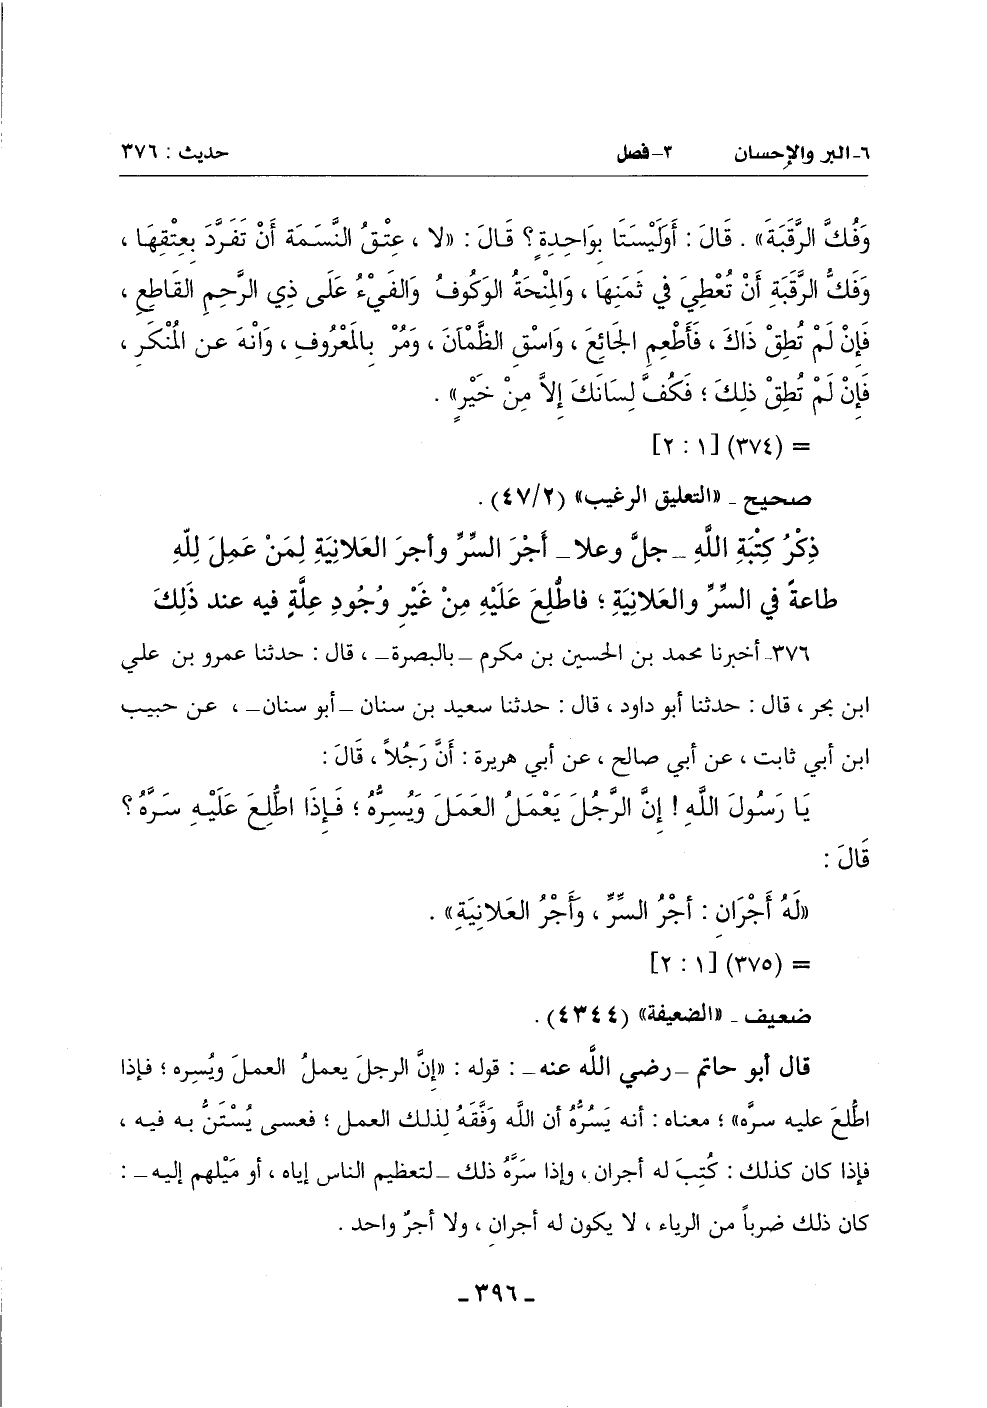 ٦ـ البر والإحسان ٣ـ فصل حديث : ٣٧٦
وَفُكَّ الرَّقَبَةَ» . قَالَ : أَوَلَيْسَتَا بِوَاحِدِةٍ ؟ قَالَ : «لا ، عِتْقُ النَّسَمَة أَنْ تَفَرَّدَ بِعِتْقِهَا ،
وَفَكُّ الرَّقَبَةِ أَنْ تُعْطِيَ فِي ثَمَنِهَا ، وَالمِنْحَةُ الوَكُوفُ وَالفَيْءُ عَلَى ذِي الرَّحِمِ القَاطِعِ ،
فَإِنْ لَمْ تُطِقْ ذَاكَ ، فَأَطْعِمِ الجَائِعَ ، وَاسْقِ الظَّمْآنَ ، وَمُرْ بِالمَعْرُوفِ ، وَانْهَ عَنِ المُنْكَرِ ،
فَإِنْ لَمْ تُطِقْ ذلِكَ ؛ فَكُفَّ لِسَانَكَ إِلاَّ مِنْ خَيْرٍ» .
= (٣٧٤) [١ : ٢]
صحيح ـ «التعليق الرغيب» (٤٧/٢) .
ذِكْرُ كِتْبَةِ اللَّهِ ـ جلَّ وعلا ـ أَجْرَ السِّرِّ وأجرَ العَلانِيَةِ لِمَنْ عَمِلَ لِلَّهِ
طاعةً في السِّرِّ والعَلانِيَةِ ؛ فاطُّلِعَ عَلَيْهِ مِنْ غَيْرِ وُجُودِ عِلَّةٍ فيه عند ذَلِكَ
٣٧٦ـ أخبرنا محمد بن الحسين بن مكرم ـ بالبصرة ـ ، قال : حدثنا عمرو بن علي
ابن بحر ، قال : حدثنا أبو داود ، قال : حدثنا سعيد بن سنان ـ أبو سنان ـ ، عن حبيب
ابن أبي ثابت ، عن أبي صالح ، عن أبي هريرة : أَنَّ رَجُلاً ، قَالَ :
يَا رَسُولَ اللَّهِ ! إِنَّ الرَّجُلَ يَعْمَلُ العَمَلَ وَيُسِرُّهُ ؛ فَإِذَا اطُّلِعَ عَلَيْهِ سَرَّهُ ؟
قَالَ :
«لَهُ أَجْرَانِ : أجْرُ السِّرِّ ، وَأَجْرُ العَلانِيَةِ» .
= (٣٧٥) [١ : ٢]
ضعيف ـ «الضعيفة» (٤٣٤٤) .
قال أبو حاتم ـ رضي اللَّه عنه ـ : قوله : «إنَّ الرجلَ يعملُ العملَ ويُسِره ؛ فإذا
اطُّلعَ عليه سرَّه» ؛ معناه : أنه يَسُرُّهُ أن اللَّه وَفَّقَهُ لِذلك العمل ؛ فعسى يُسْتَنُّ به فيه ،
فإذا كان كذلك : كُتِبَ له أجران ، وإذا سَرَّهُ ذلك ـ لتعظيم الناس إياه ، أو مَيْلهم إليه ـ :
كان ذلك ضرباً من الرياء ، لا يكون له أجرانِ ، ولا أجرٌ واحد .
ـ ٣٩٦ ـ